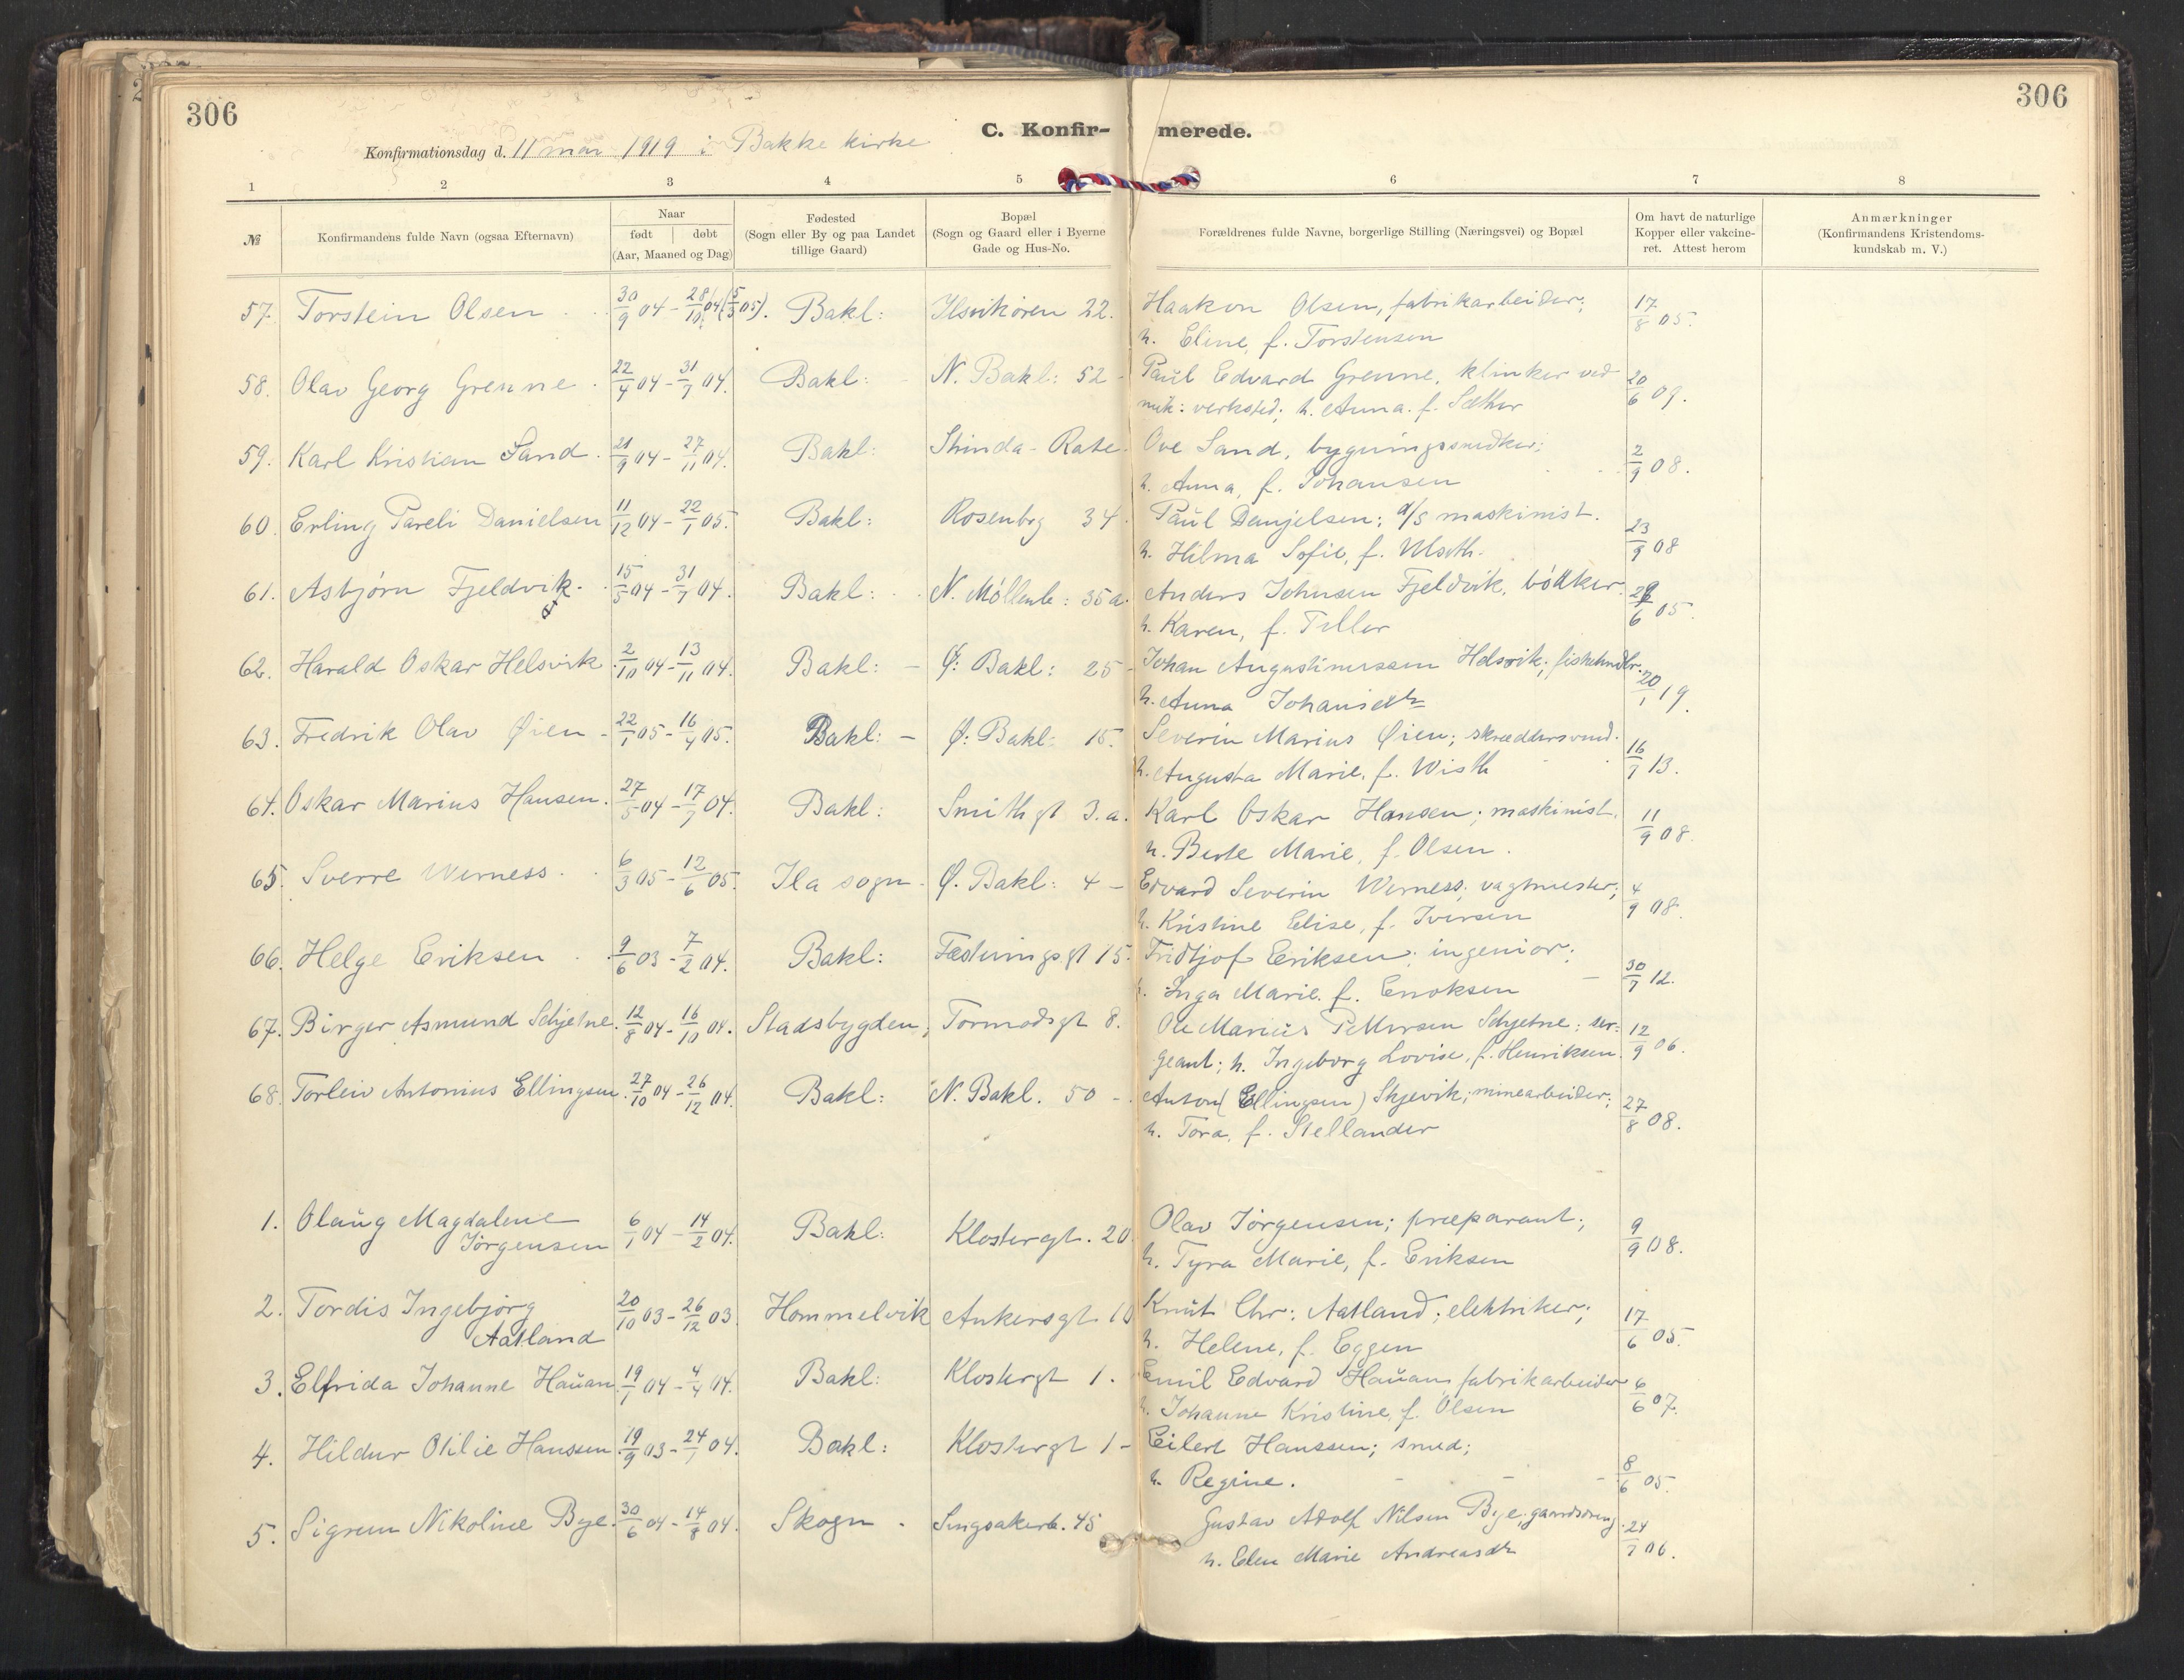 306
306
C. Konfir- merede.
Konfirmationsdag d. 11 mai 1919 i Bakke kirke
1 2 3 4 5 6 7 8
№
Konfirmandens fulde Navn (ogsaa Efternavn)
Naar
født | døbt
(Aar, Maaned og Dag)
Fødested
(Sogn eller By og paa Landet
tillige Gaard)
Bopæl
(Sogn og Gaard eller i Byerne
Gade og Hus-No.
Forældrenes fulde Navne, borgerlige Stilling (Næringsvei) og Bopæl
Om havt de naturlige
Kopper eller vakcine-
ret. Attest herom
Anmærkninger
(Konfirmandens Kristendoms-
kundskab m. V.)
57. Torstein Olsen 30/9 04 - 28/10 04 (5/3 05). Bakl: Ilsvikøren 22. Haakon Olsen, fabrikarbeider; 17/8 05.
h. Eline, f. Torstensen
58. Olav Georg Grenne 22/4 04 - 31/7 04. Bakl: N. Bakl: 52 Paul Edvard Grenne, klinker ved 20/6 09.
mek: verksted; h. Anna f. Sæther
59. Karl Kristian Sand 21/9 04 - 27/11 04. Bakl: Strinda - Rate Ove Sand, bygningssnedker; 2/9 08.
h. Anna, f. Johansen
60. Erling Pareli Danielsen 11/12 04 - 22/1 05. Bakl: Rosenbg 34 Paul Danjelsen; d/s maskinist. 23/9 08
h. Hilma Sofie, f.
61. Asbjørn Fjeldvik 15/5 04 - 31/7 04. Bakl: N. Møllenb: 35a. Anders Johnsen Fjeldvik, bødker. /6 05.
h. Karen, f. Tiller
62. Harald Oskar Helsvik 2/10 04 - 13/11 04. Bakl: - Ø: Bakl: 25 - Johan Augustinussen Helsvik; fiskehndlr. 20/1 19.
h. Anna Johansdtr
63. Fredrik Olav Øien - 22/1 05 - 16/4 05. Bakl: - Ø: Bakl: 15. Severin Marius Øien; skræddersvend. 16/7 13.
h. Augusta Marie, f. Wisth
64. Oskar Marius Hansen. 27/5 04 - 17/7 04. Bakl: Smithgt 3.a. Karl Oskar Hansen; maskinist. 11/9 08.
h. Berte Marie, f. Olsen.
65. Sverre Werness 6/3 05 - 12/6 05. Ila sogn Ø. Bakl: 4 - Edvard Severin Werness; vagtmester; 4/9 08.
h. Kristine Elise, f. Iversen
66. Helge Eriksen 9/6 03 - 7/2 04. Bakl: Fæstningsgt 15. Fridtjof Eriksen; ingeniør; 30/7 12.
h. Inga Marie f. Enoksen
67. Birger Asmund Schjetne 12/8 04 - 16/10 04. Stadsbygden, Tormodsgt 8. Ole Marius Pettersen Schjetne; ser- 12/9 06.
geant; h. Ingeborg Lovise, f. Henriksen
68. Torleiv Antonius Ellingsen. 27/10 04 - 26/12 04. Bakl: N. Bakl. 50 - Anton (Ellingsen) Skjevik; minearbeider; 27/8 08.
h. Tora, f. Stellander
1. Olaug Magdalene 6/1 04 - 14/2 04. Bakl: Klostergt. 20 Olav Jørgensen; præparant; 9/9 08.
Jørgensen h. Tyra Marie, f. Eriksen
2. Tordis Ingebjørg 20/10 03 - 26/12 03. Hommelvik Ankersgt 10 Knut Chr: Aatland; elektriker; 17/6 05.
Aatland h. Helene, f. Eggen
3. Elfrida Johanne Hauan 19/1 04 - 4/4 04. Bakl: Klostergt 1. Emil Edvard Hauan, fabrikarbeider 6/6 07.
h. Johanne Kristine, f. Olsen
4. Hildur Otilie Hanssen 19/9 03 - 24/1 04. Bakl: Klostergt 1 - Eilert Hanssen; smed; 8/6 05.
h. Regine.
5. Sigrun Nikoline Bye. 30/6 04 - 14/8 04. Skogn Singsakerb. 45 Gustav Adolf Nilsen Bye; gaardsdreng. 24/7 06.
h. Elen Marie Andreasdtr